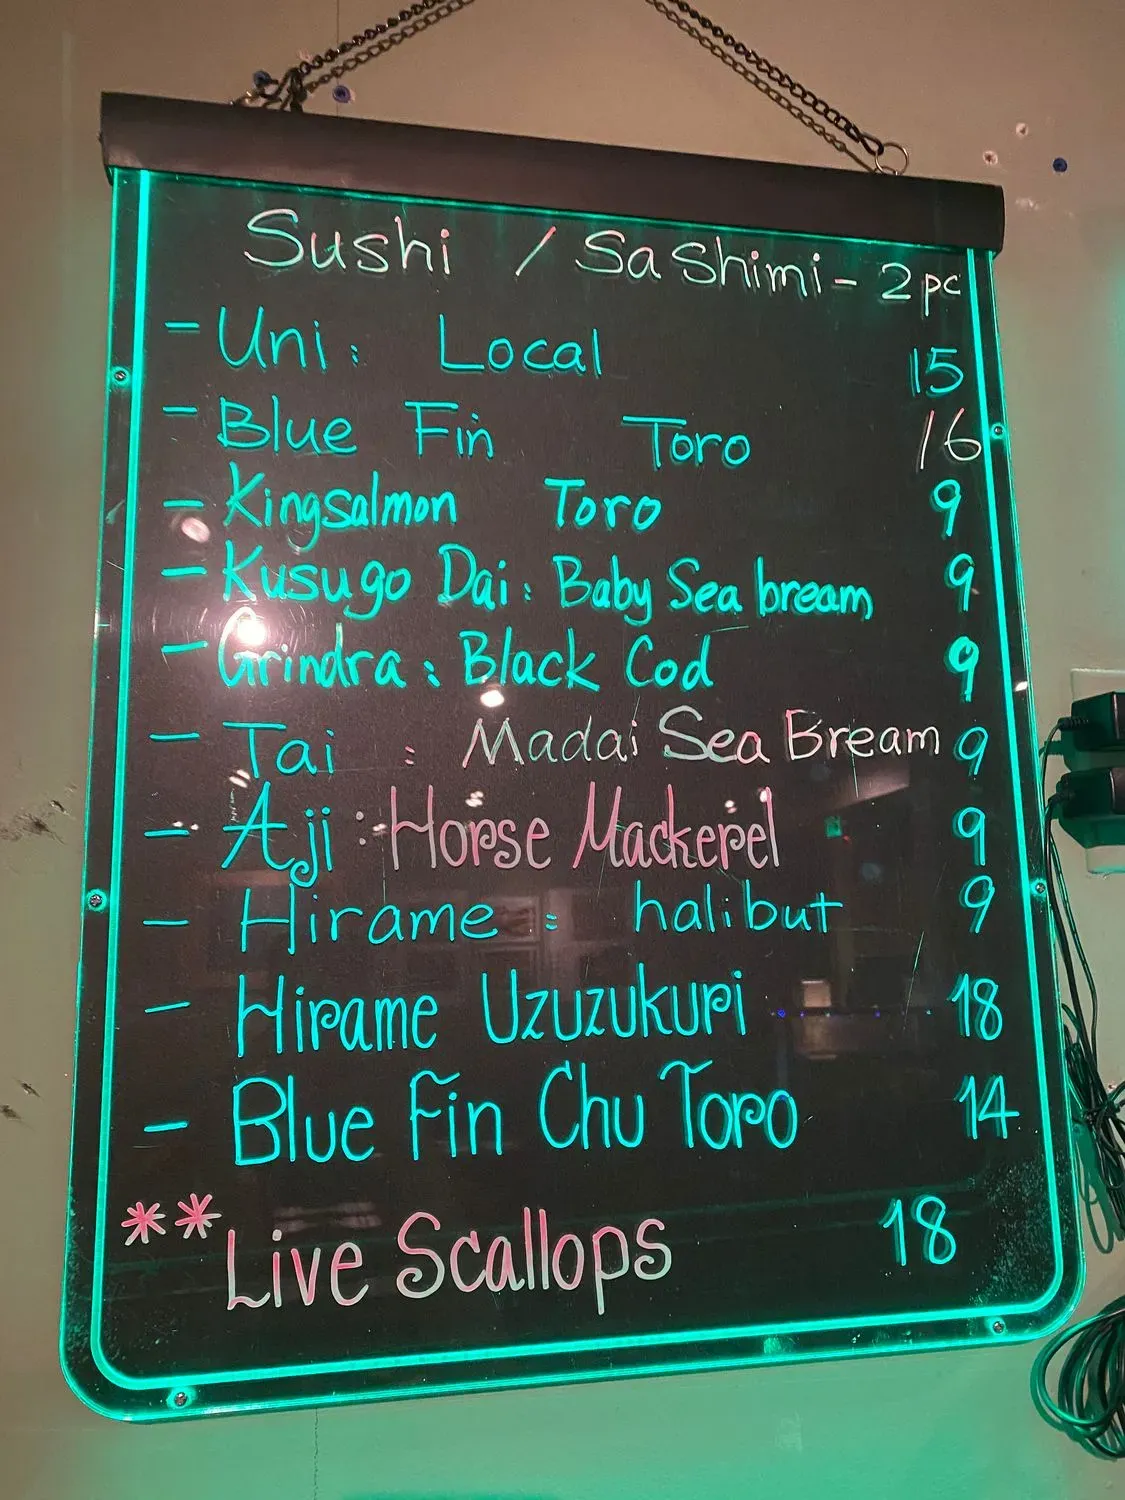 Sushi / Sashimi - 2 pc
- Uni : Local 15
- Blue Fin Toro 16
- Kingsalmon Toro 9
- Kusugo Dai : Baby Sea bream 9
- Grindra : Black Cod 9
- Tai : Madai Sea Bream 9
- Aji : Horse Mackerel 9
- Hirame : halibut 9
- Hirame Uzuzukuri 18
- Blue Fin Chu Toro 14
**Live Scallops 18